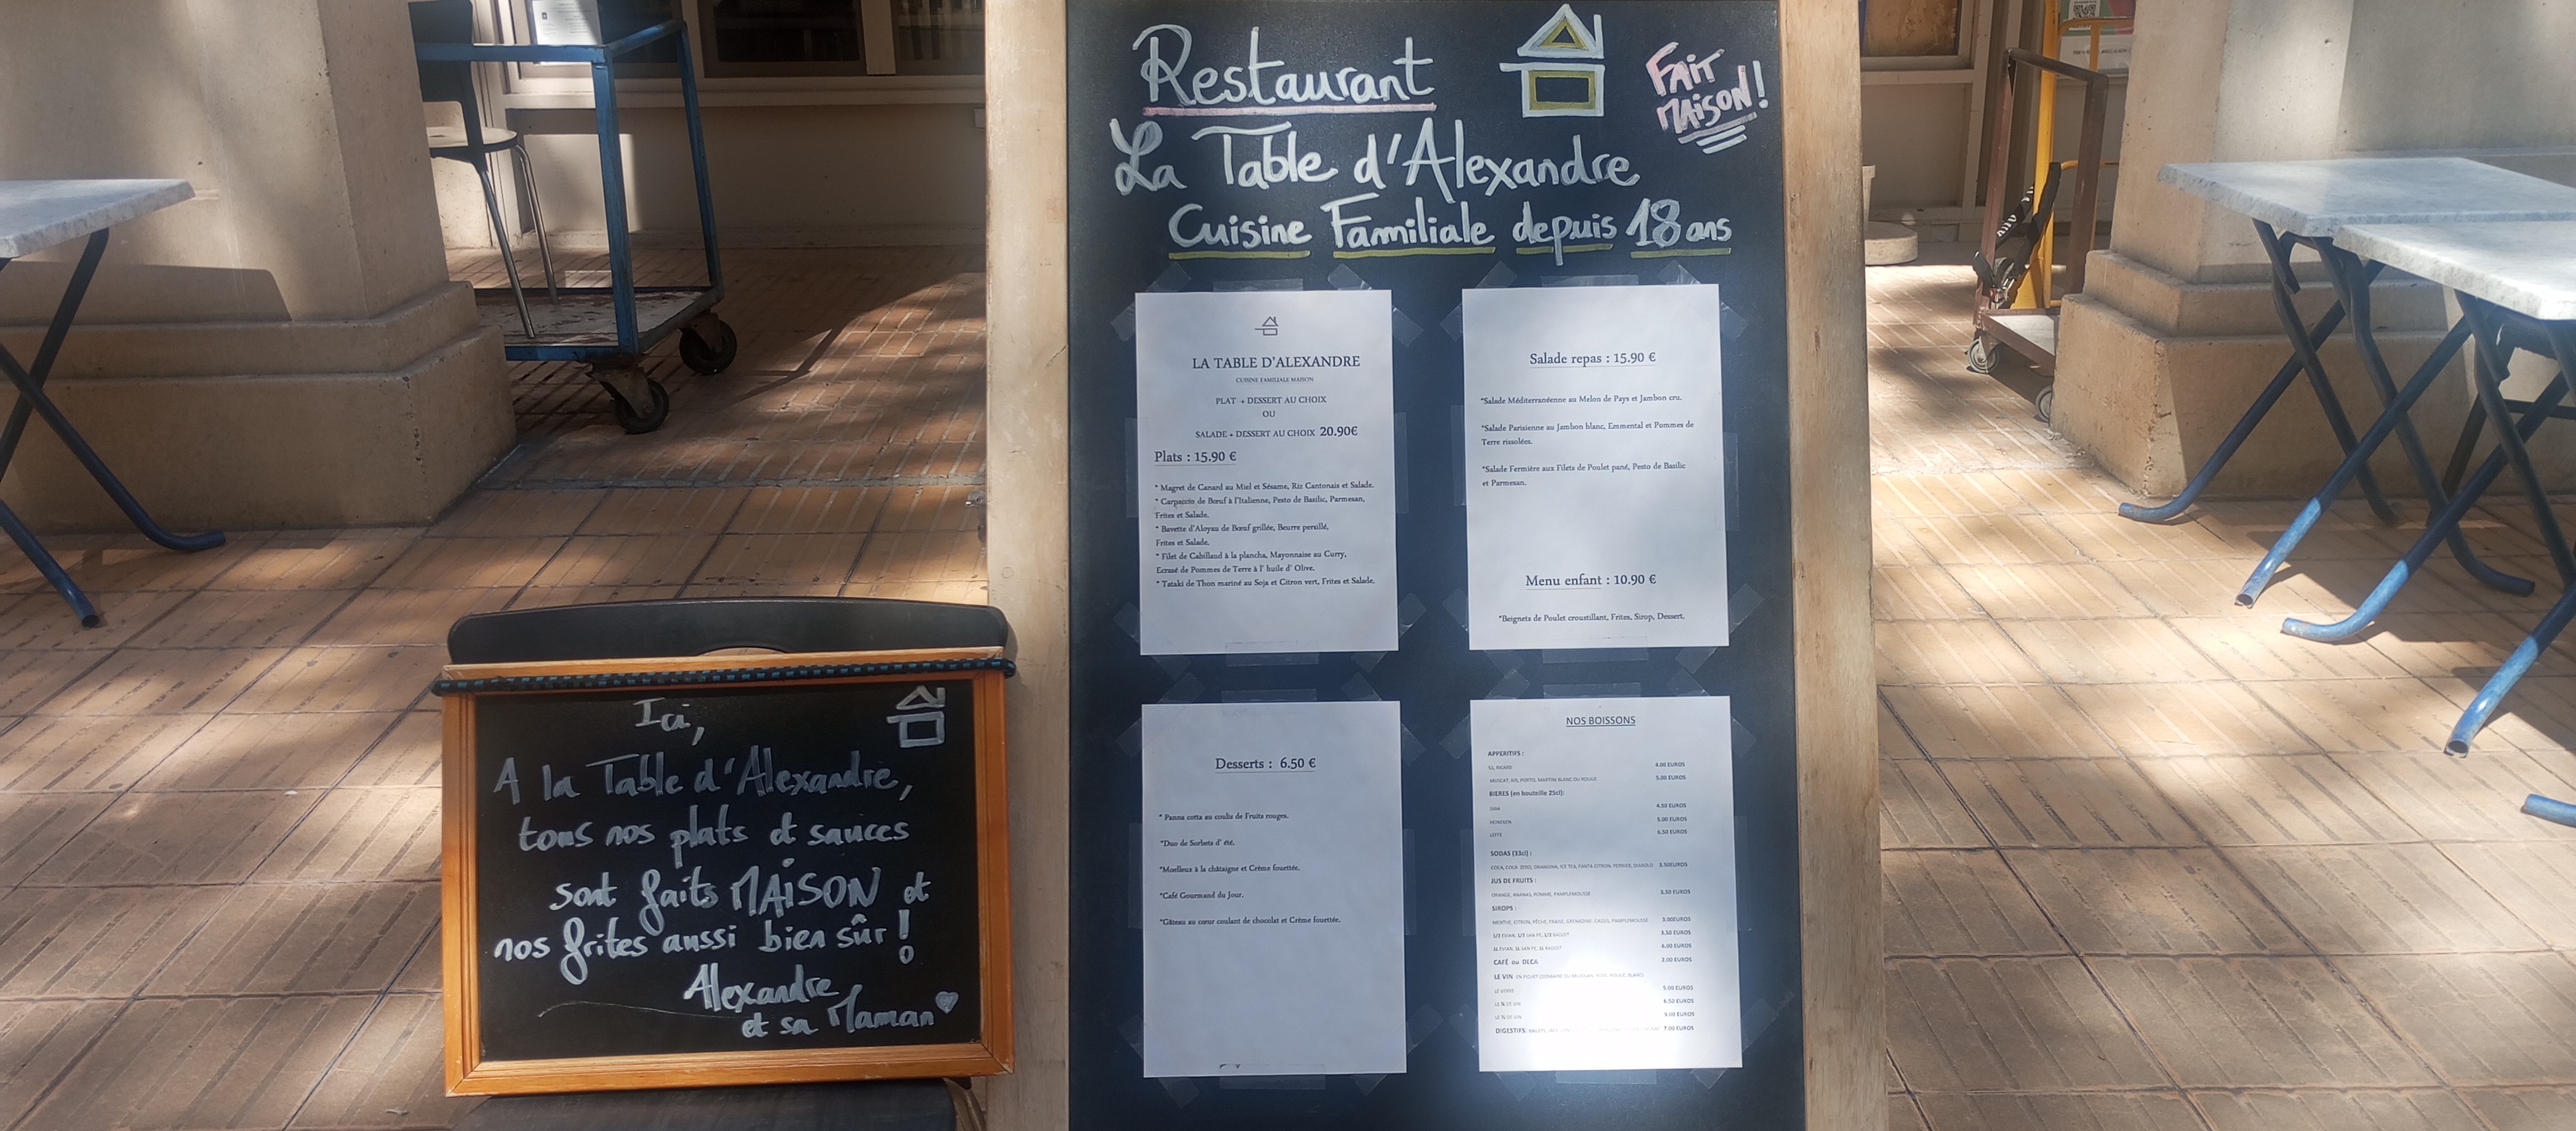 Restaurant
FAIT
MAISON!
La Table d'Alexandre
Cuisine Familiale depuis 18 ans
LA TABLE D'ALEXANDRE
CUISINE FAMILIALE MAISON
PLAT + DESSERT AU CHOIX
OU
SALADE + DESSERT AU CHOIX 20.90€
Plats : 15.90 €
* Magret de Canard au Miel et Sésame, Riz Cantonais et Salade.
* Carpaccio de Bœuf à l'Italienne, Pesto de Basilic, Parmesan,
Frites et Salade.
* Bavette d'Aloyau de Bœuf grillée, Beurre persillé,
Frites et Salade.
* Filet de Cabillaud à la plancha, Mayonnaise au Curry,
Ecrasé de Pommes de Terre à l' huile d' Olive.
* Tataki de Thon mariné au Soja et Citron vert, Frites et Salade.
Salade repas : 15.90 €
*Salade Méditerranéenne au Melon de Pays et Jambon cru.
*Salade Parisienne au Jambon blanc, Emmental et Pommes de
Terre rissolées.
*Salade Fermière aux Filets de Poulet pané, Pesto de Basilic
et Parmesan.
Menu enfant : 10.90 €
*Beignets de Poulet croustillant, Frites, Sirop, Dessert.
Desserts : 6.50 €
* Panna cotta au coulis de Fruits rouges.
*Duo de Sorbets d' été.
*Moelleux à la châtaigne et Crème fouettée.
*Café Gourmand du Jour.
*Gâteau au cœur coulant de chocolat et Crème fouettée.
NOS BOISSONS
APPERITIFS :
RICARD 4.00 EUROS
MUSCAT, KIR, PORTO, MARTINI BLANC OU ROUGE 5.00 EUROS
BIERES (en bouteille 25cl):
4.50 EUROS
HEINEKEN 5.00 EUROS
LEFFE 6.50 EUROS
SODAS (33cl) :
COCA, COCA ZERO, ORANGINA, ICE TEA, FANTA CITRON, PERRIER, DIABOLO 3.50EUROS
JUS DE FRUITS :
ORANGE, ANANAS, POMME, PAMPLEMOUSSE 3.50 EUROS
SIROPS :
MENTHE, CITRON, PÊCHE, FRAISE, GRENADINE, CASSIS, PAMPLEMOUSSE 3.00EUROS
1/2 EVIAN, 1/2 SAN PE, 1/2 BADOIT 3.50 EUROS
1L EVIAN, 1L SAN PE, 1L BADOIT 6.00 EUROS
CAFÉ ou DECA 2.00 EUROS
LE VIN EN PICHET
LE VERRE 5.00 EUROS
LE ¼ DE VIN 6.50 EUROS
LE ½ DE VIN 9.00 EUROS
DIGESTIFS: 7.00 EUROS
Ici,
A la Table d'Alexandre,
tous nos plats et sauces
sont faits MAISON et
nos frites aussi bien sûr !
Alexandre
et sa Maman